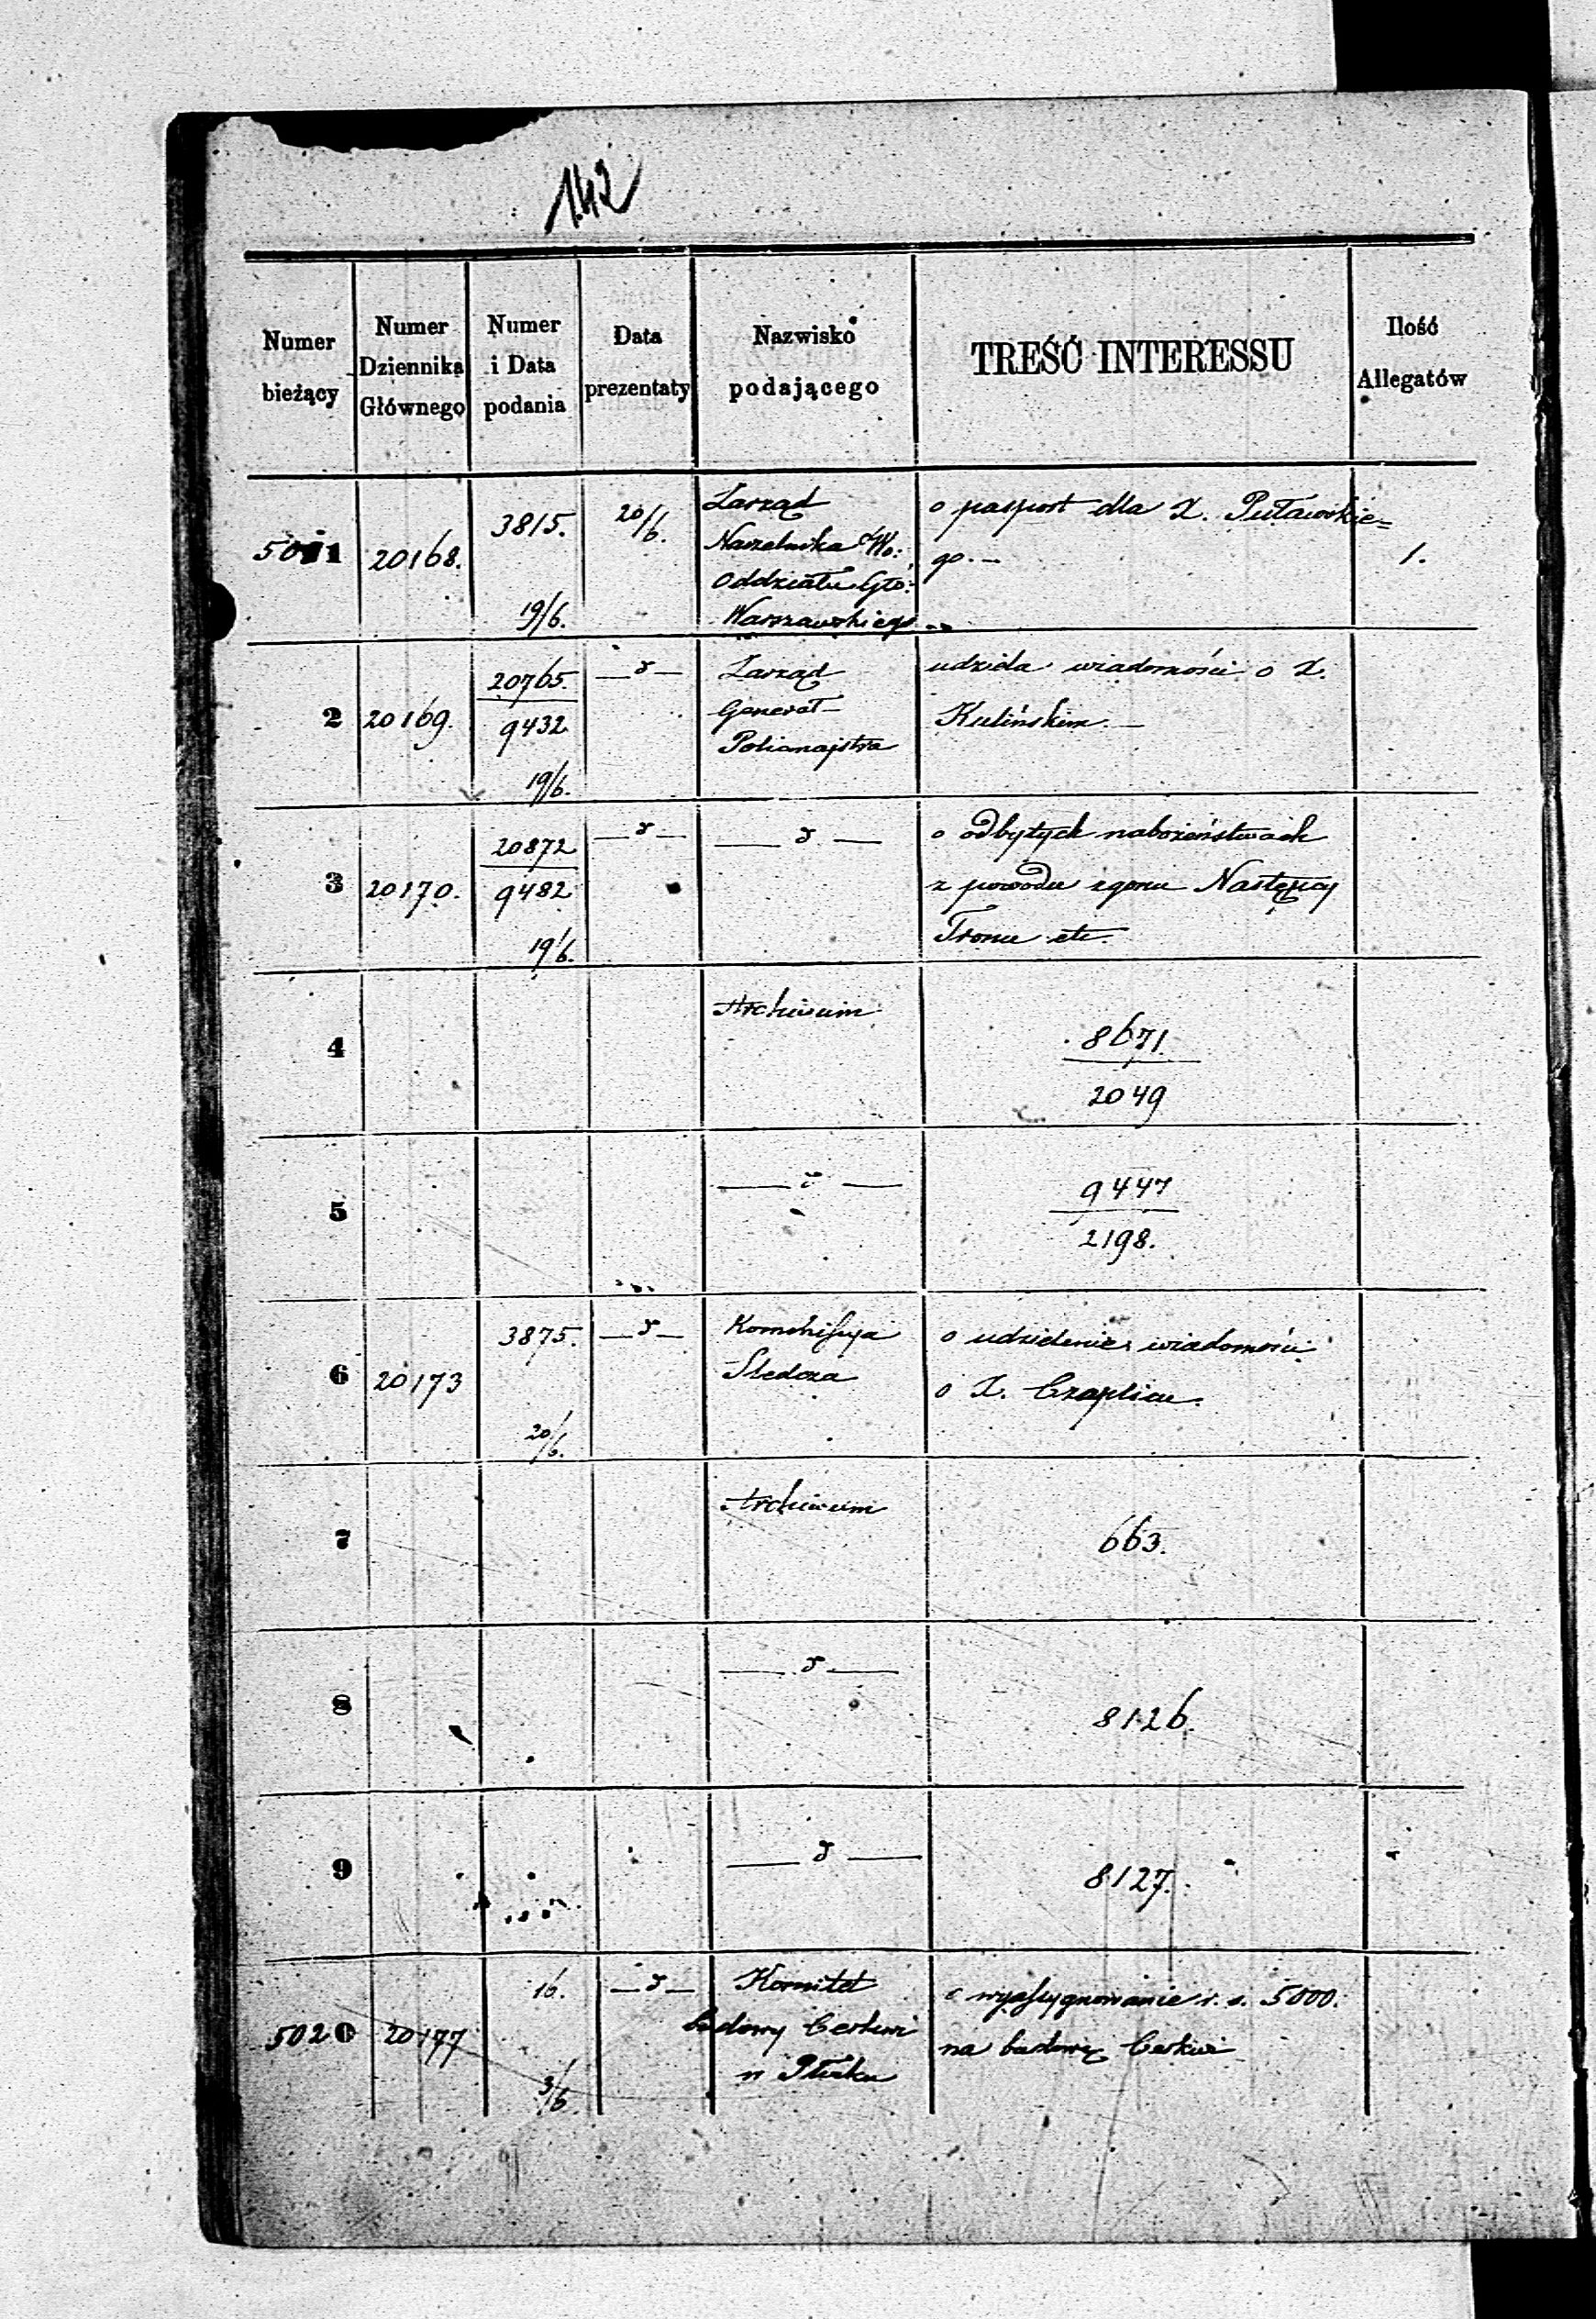 142
Numer bieżący
Numer Dziennika Głównego
Numer i Data podania
Data prezentaty
Nazwisko podającego
TREŚĆ INTERESSU
Ilość Allegatów
5011
20168.
3815.
19/6.
20/6.
Zarząd
Naczelnika Wo:
Oddziału Głó:
Warszawskiego
o paszport dla X. Puławskie=
go. —
1.
2
20169.
20765.
9432
19/6.
— d —
Zarząd
Generał
Policmajstra
udziela wiadomości o X.
Kulińskim. —
3
20170.
20872
9482
19/6.
— d —
— d —
o odbytych nabożeństwach
z powodu zgonu Następcy
Tronu etc.
4
Archiwum
8671.
2049
5
— d —
9447
2198.
6
20173
3875.
20/6.
— d —
Kommissyja
Sledcza
o udzielenie wiadomości
o X. Czaplicu.
7
Archiwum
663.
8
— d —
8126.
9
— d —
8127.
5020
20177
16.
3/6.
— d —
Komitet
budowy Cerkwi
w Płocku
o wyassygnowanie r. s. 5000.
na budowę Cerkwi